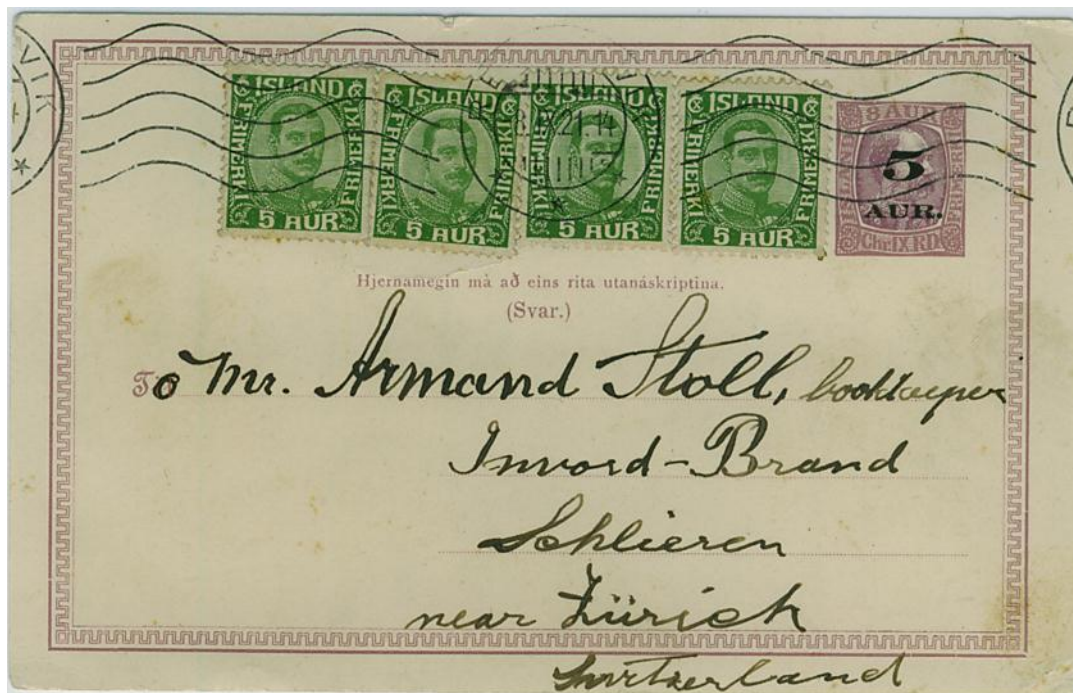 VIK
ISLAND
FRIMERKI
FRIMERKI
5 AUR
ISLAND
FRIMERKI
FRIMERKI
5 AUR
ISLAND
FRIMERKI
FRIMERKI
5 AUR
ISLAND
FRIMERKI
FRIMERKI
5 AUR
8 AUR
5
AUR.
FRIMERKI
Chr.IX.RD.
21.14
Hjernamegin má að eins rita utanáskriptina.
(Svar.)
To Mr. Armand Stoll, bookkeeper
Inword-Brand
Schlieren
near Zürich
Switzerland